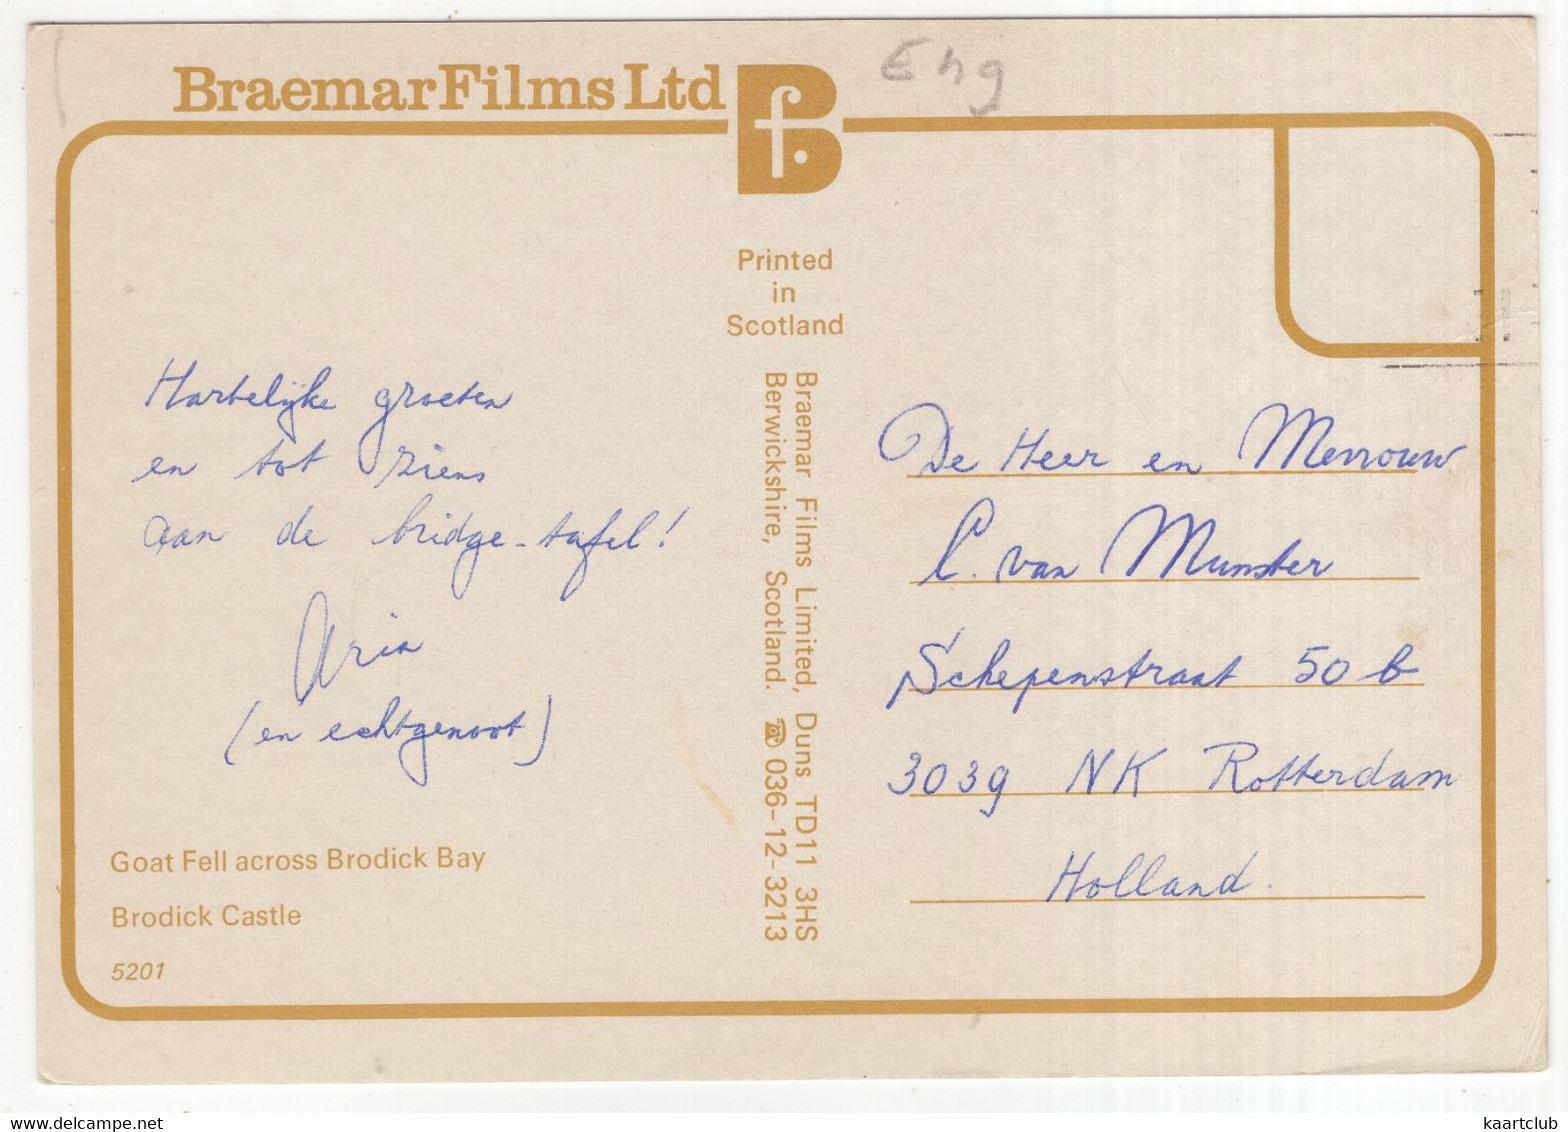 Braemar Films Ltd
Eng
Printed
in
Scotland
Braemar Films Limited, Duns TD11 3HS
Berwickshire, Scotland. ☎ 036-12-3213
Hartelijke groeten
en tot ziens
aan de bridge-tafel!
Aria
(en echtgenoot)
Goat Fell across Brodick Bay
Brodick Castle
5201
De Heer en Mevrouw
C. van Munster
Schepenstraat 50 b
3039 NK Rotterdam
Holland.
kaartclub